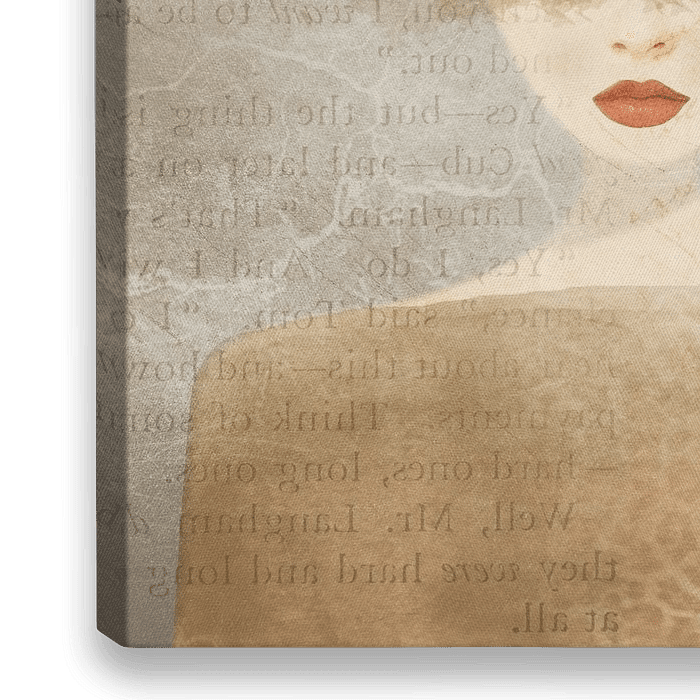 you, I want to be
out.”
“Yes—but the thing is
Cub—and later on a
Mr. Langham. “That's
“Yes, I do. And I
chance,” said Tom. “I
hear about this—and how
payments. Think of
—hard ones, long ones.
Well, Mr. Langham
they were hard and long
at all.